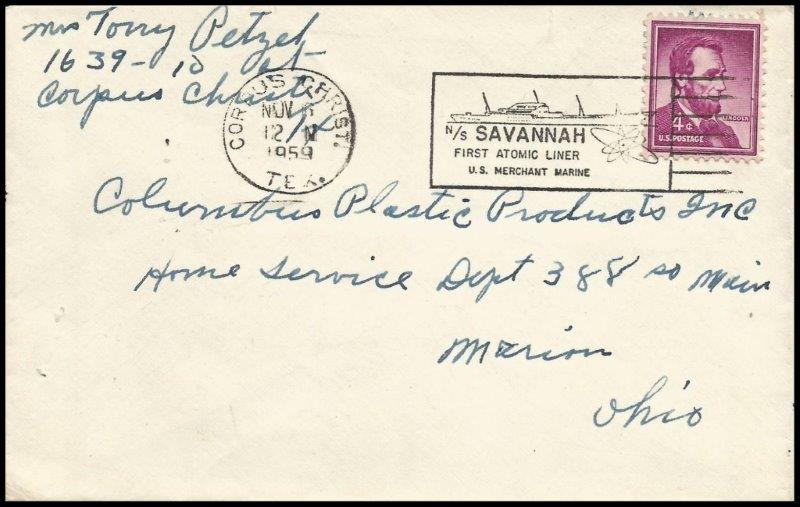 Mrs Tony Petzel
1639 - 10 st
Corpus Christi
Tx
CORPUS CHRISTI.
NOV 6
12 M
1959
TEX.
N/S SAVANNAH
FIRST ATOMIC LINER
U.S. MERCHANT MARINE
LINCOLN
4¢
U.S. POSTAGE
Columbus Plastic Products Inc
Home Service Dept 388 so Main
Marion
Ohio